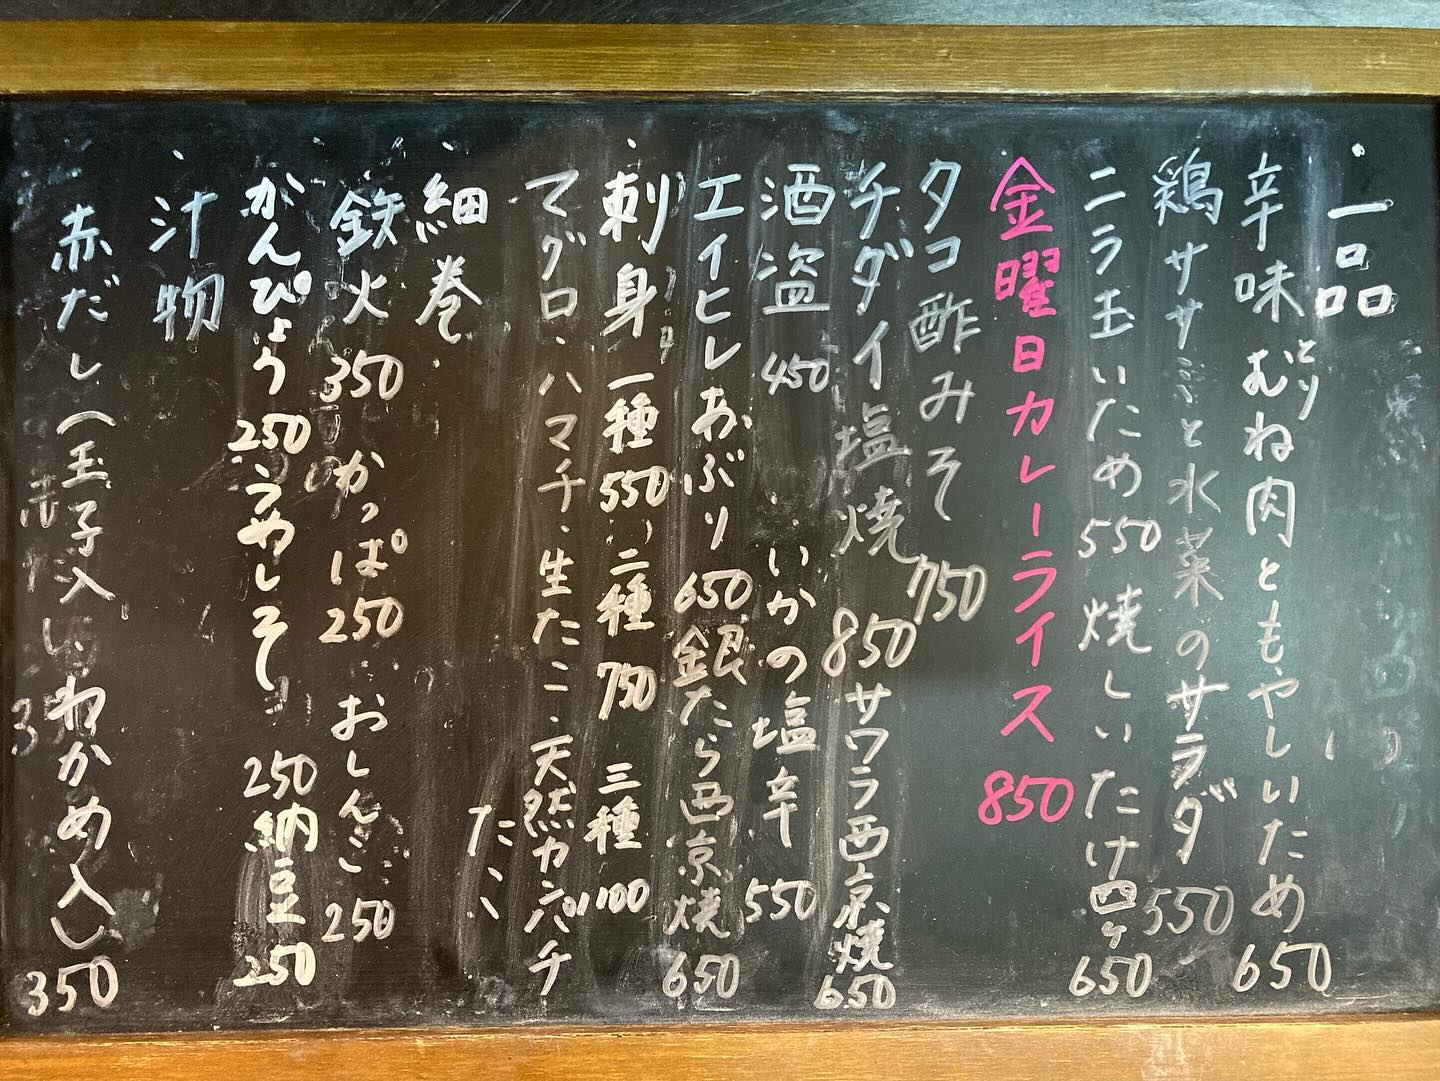 ・一品
辛味とりむね肉ともやしいため 650
鶏ササミと水菜のサラダ 550
ニラ玉いため 550 焼しいたけ四ヶ 650
金曜日カレーライス 850
タコ酢みそ 750
チダイ塩焼 850 サワラ西京焼 650
酒盗 450 いかの塩辛 550
エイヒレあぶり 650 銀たら西京焼 650
・刺身 一種 550 二種 750 三種
マグロ、ハマチ、生たこ、天然カンパチ
たこ
・細巻
鉄火 350 かっぱ 250 おしんこ 250
かんぴょう 250 うめしそ 250 納豆 250
・汁物
赤だし(玉子入し、わかめ入し) 350